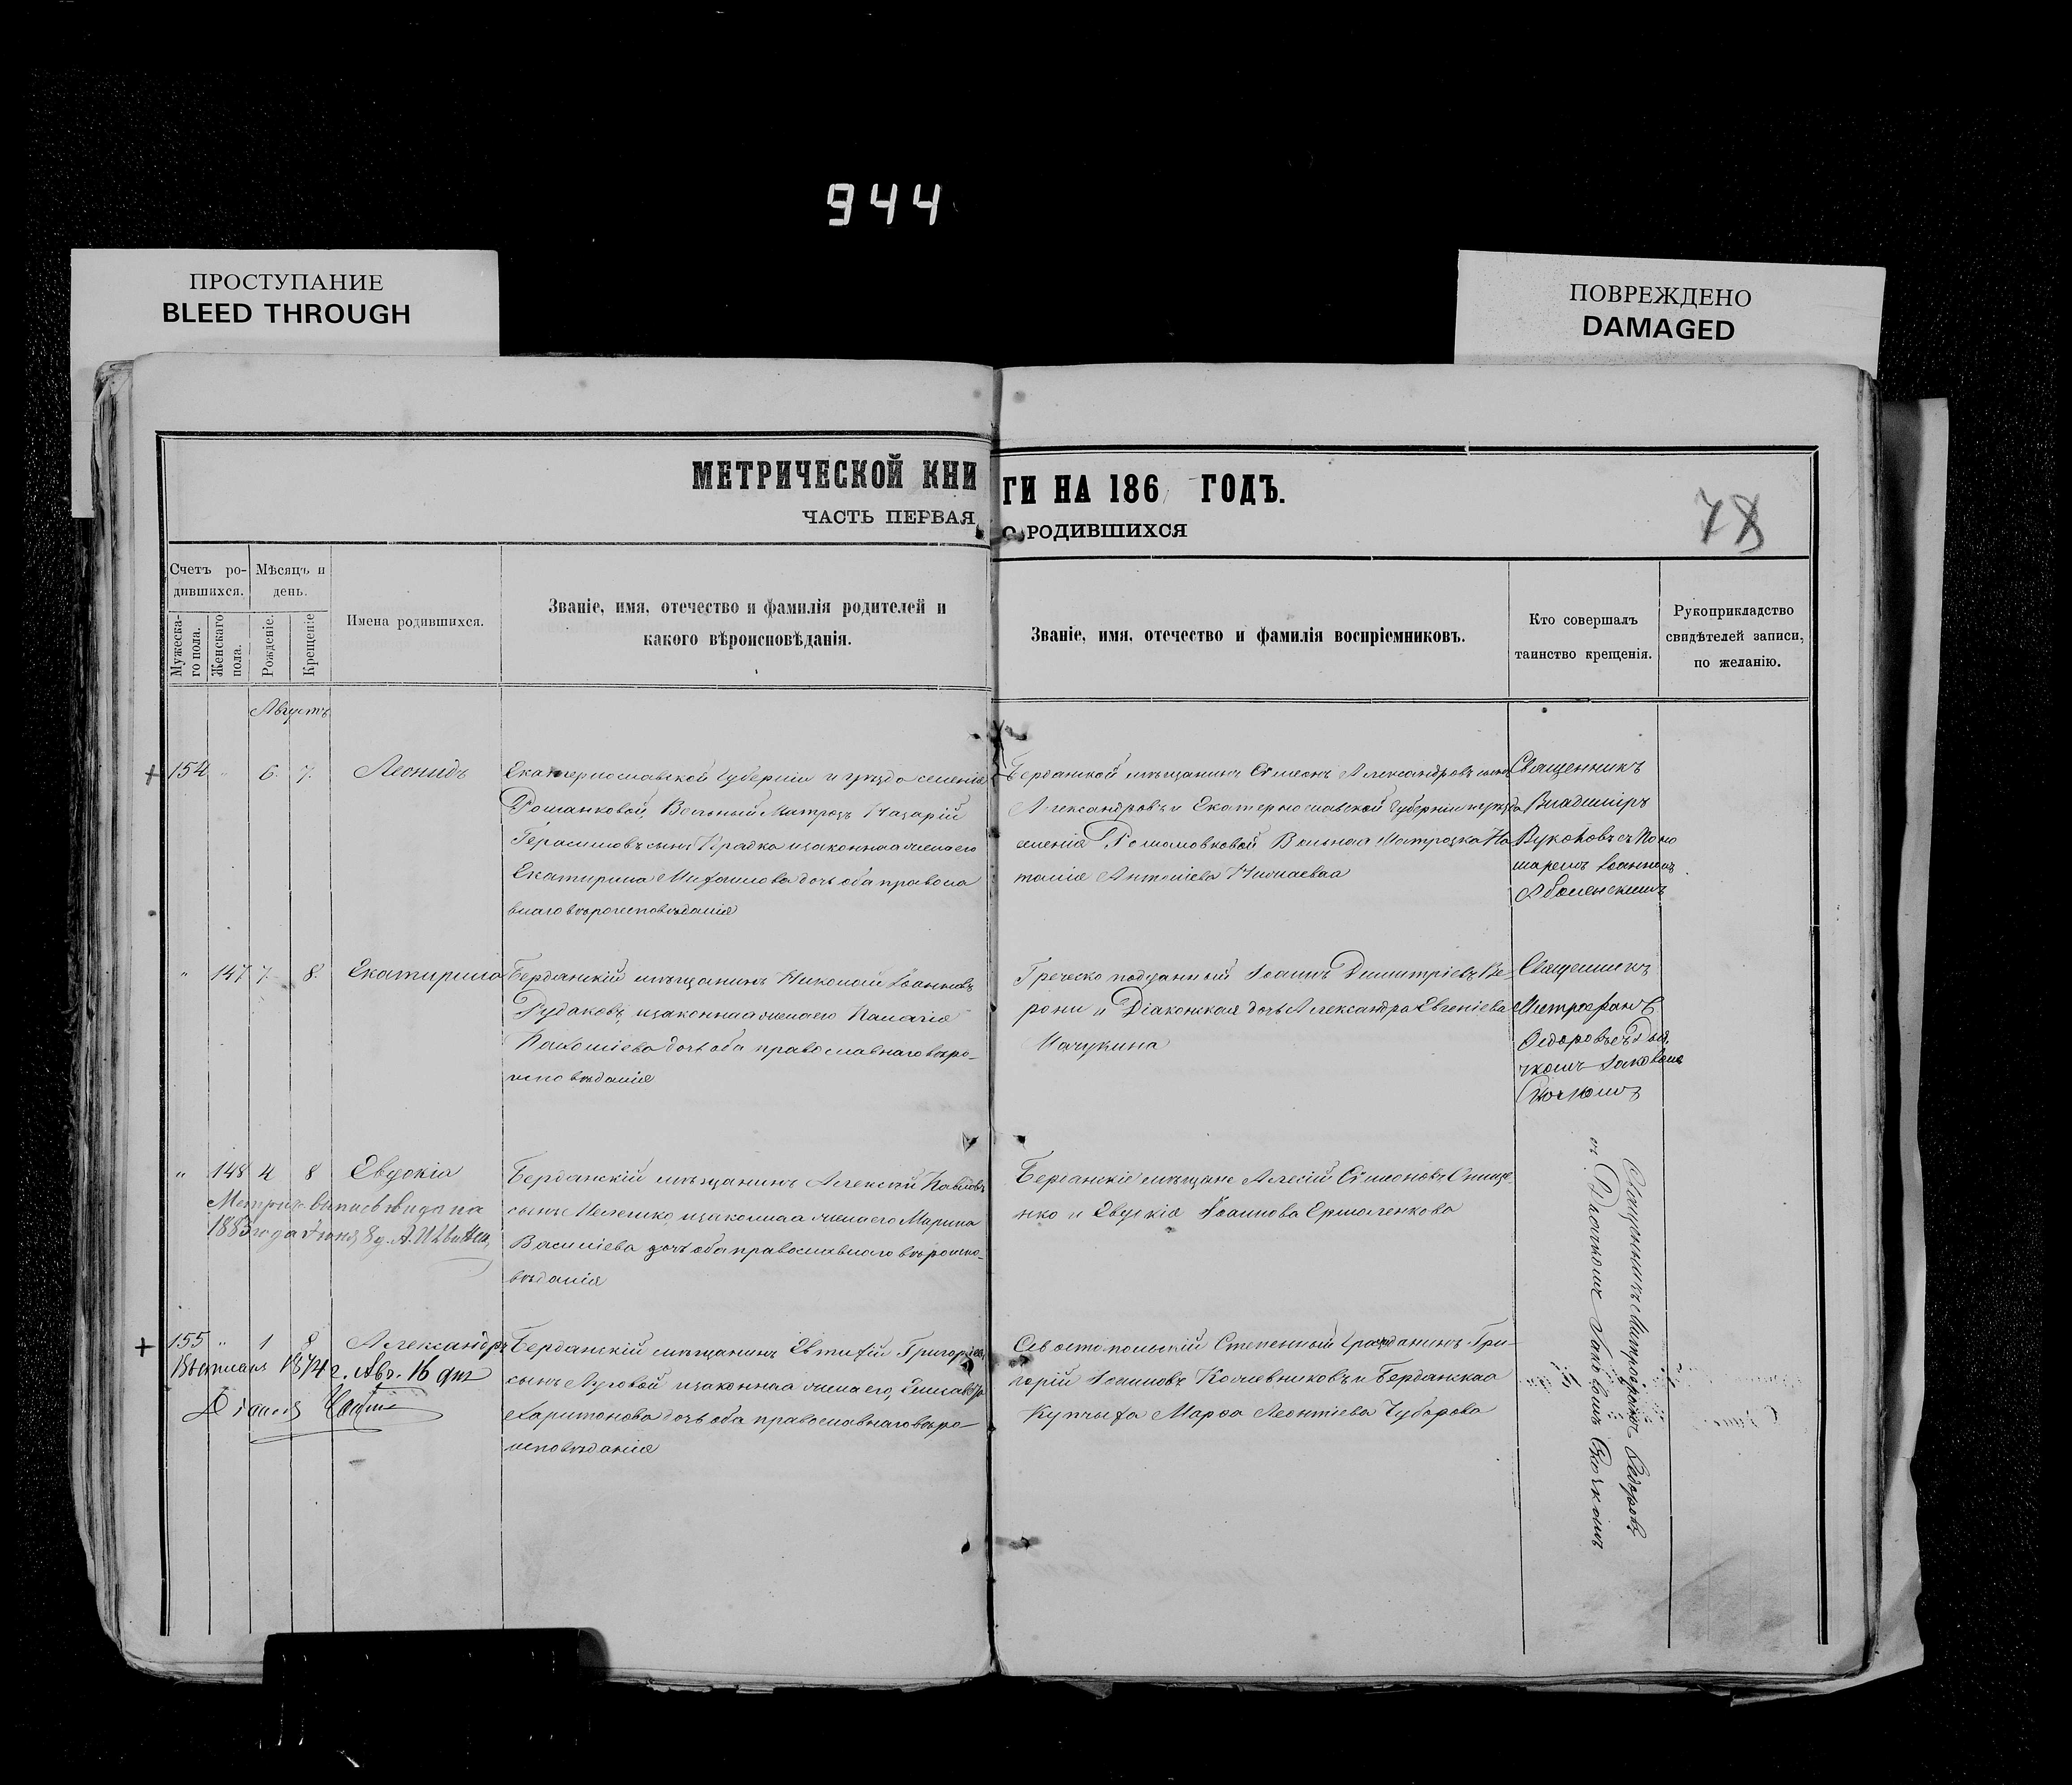 944
ПРОСТУПАНИЕ
BLEED THROUGH
ПОВРЕЖДЕНО
DAMAGED
МЕТРИЧЕСКОЙ КНИГИ НА 186 ГОДЪ.
ЧАСТЬ ПЕРВАЯ О РОДИВШИХСЯ
78
Счетъ ро-
дившихся.
Мужеска-
го пола.
Женскаго
пола.
Мѣсяцъ и
день.
Рожденіе.
Крещеніе
Имена родившихся.
Званіе, имя, отечество и фамилія родителей и
какого вѣроисповѣданія.
Званіе, имя, отечество и фамилія воспріемниковъ.
Кто совершалъ
таинство крещенія.
Рукоприкладство
свидѣтелей записи,
по желанію.
Августъ
154 " 6. 7. Леонидъ
Екатеринославской Губерніи и уѣзда селенія
Вольный Матрозъ Назарій
Герасимовъ сынъ и законная жена его
Екатерина дочь оба правосла
внаго вѣроисповѣданія
Бердянской мѣщанинъ Симеонъ Александровъ сынъ
Александровъ и Екатеринославской Губерніи и уѣзда
селенія Вольная Матрозка На
талія Антоніева
Священникъ
Владиміръ
Вуковъ съ Поно
маремъ Іоанномъ
" 147 7. 8. Екатирина
Бердянскій мѣщанинъ Николай Іоанновъ
Рудаковъ, и законная жена его
дочь оба православнаго вѣро-
исповѣданія
Греческо подданный Іоаннъ Димитріевъ Ве-
рони и Діаконская дочь Александра Евгеніева
Мачукина
Священникъ
Митрофанъ
Ѳедоровъ съ Дья
чкомъ Іаковомъ
" 148 4 8 Евдокія
Бердянскій мѣщанинъ Алексѣй Павловъ
сынъ и законная жена его Марина
Василіева дочь оба православнаго вѣроиспо-
вѣданія
Бердянскіе мѣщане Алексій Симеоновъ Онище
нко и Евдокія Іоаннова Ермоленкова
1883 года Іюня 8 д.
155 " 1 8 Александръ
Бердянскій мѣщанинъ Евтифій Григоріевъ
сынъ Луговой и законная жена его, Елисавета
Харитонова дочь оба православнаго вѣро-
исповѣданія
Севостопольскій Степенный Гражданинъ Гри-
горій Іоанновъ Кожевниковъ и Бердянская
Купчиха Марѳа Леонтіева Чуборова
1874 г. Авг. 16 дня
Священникъ Митрофанъ Ѳедоровъ
съ Дьячкомъ Іаковомъ